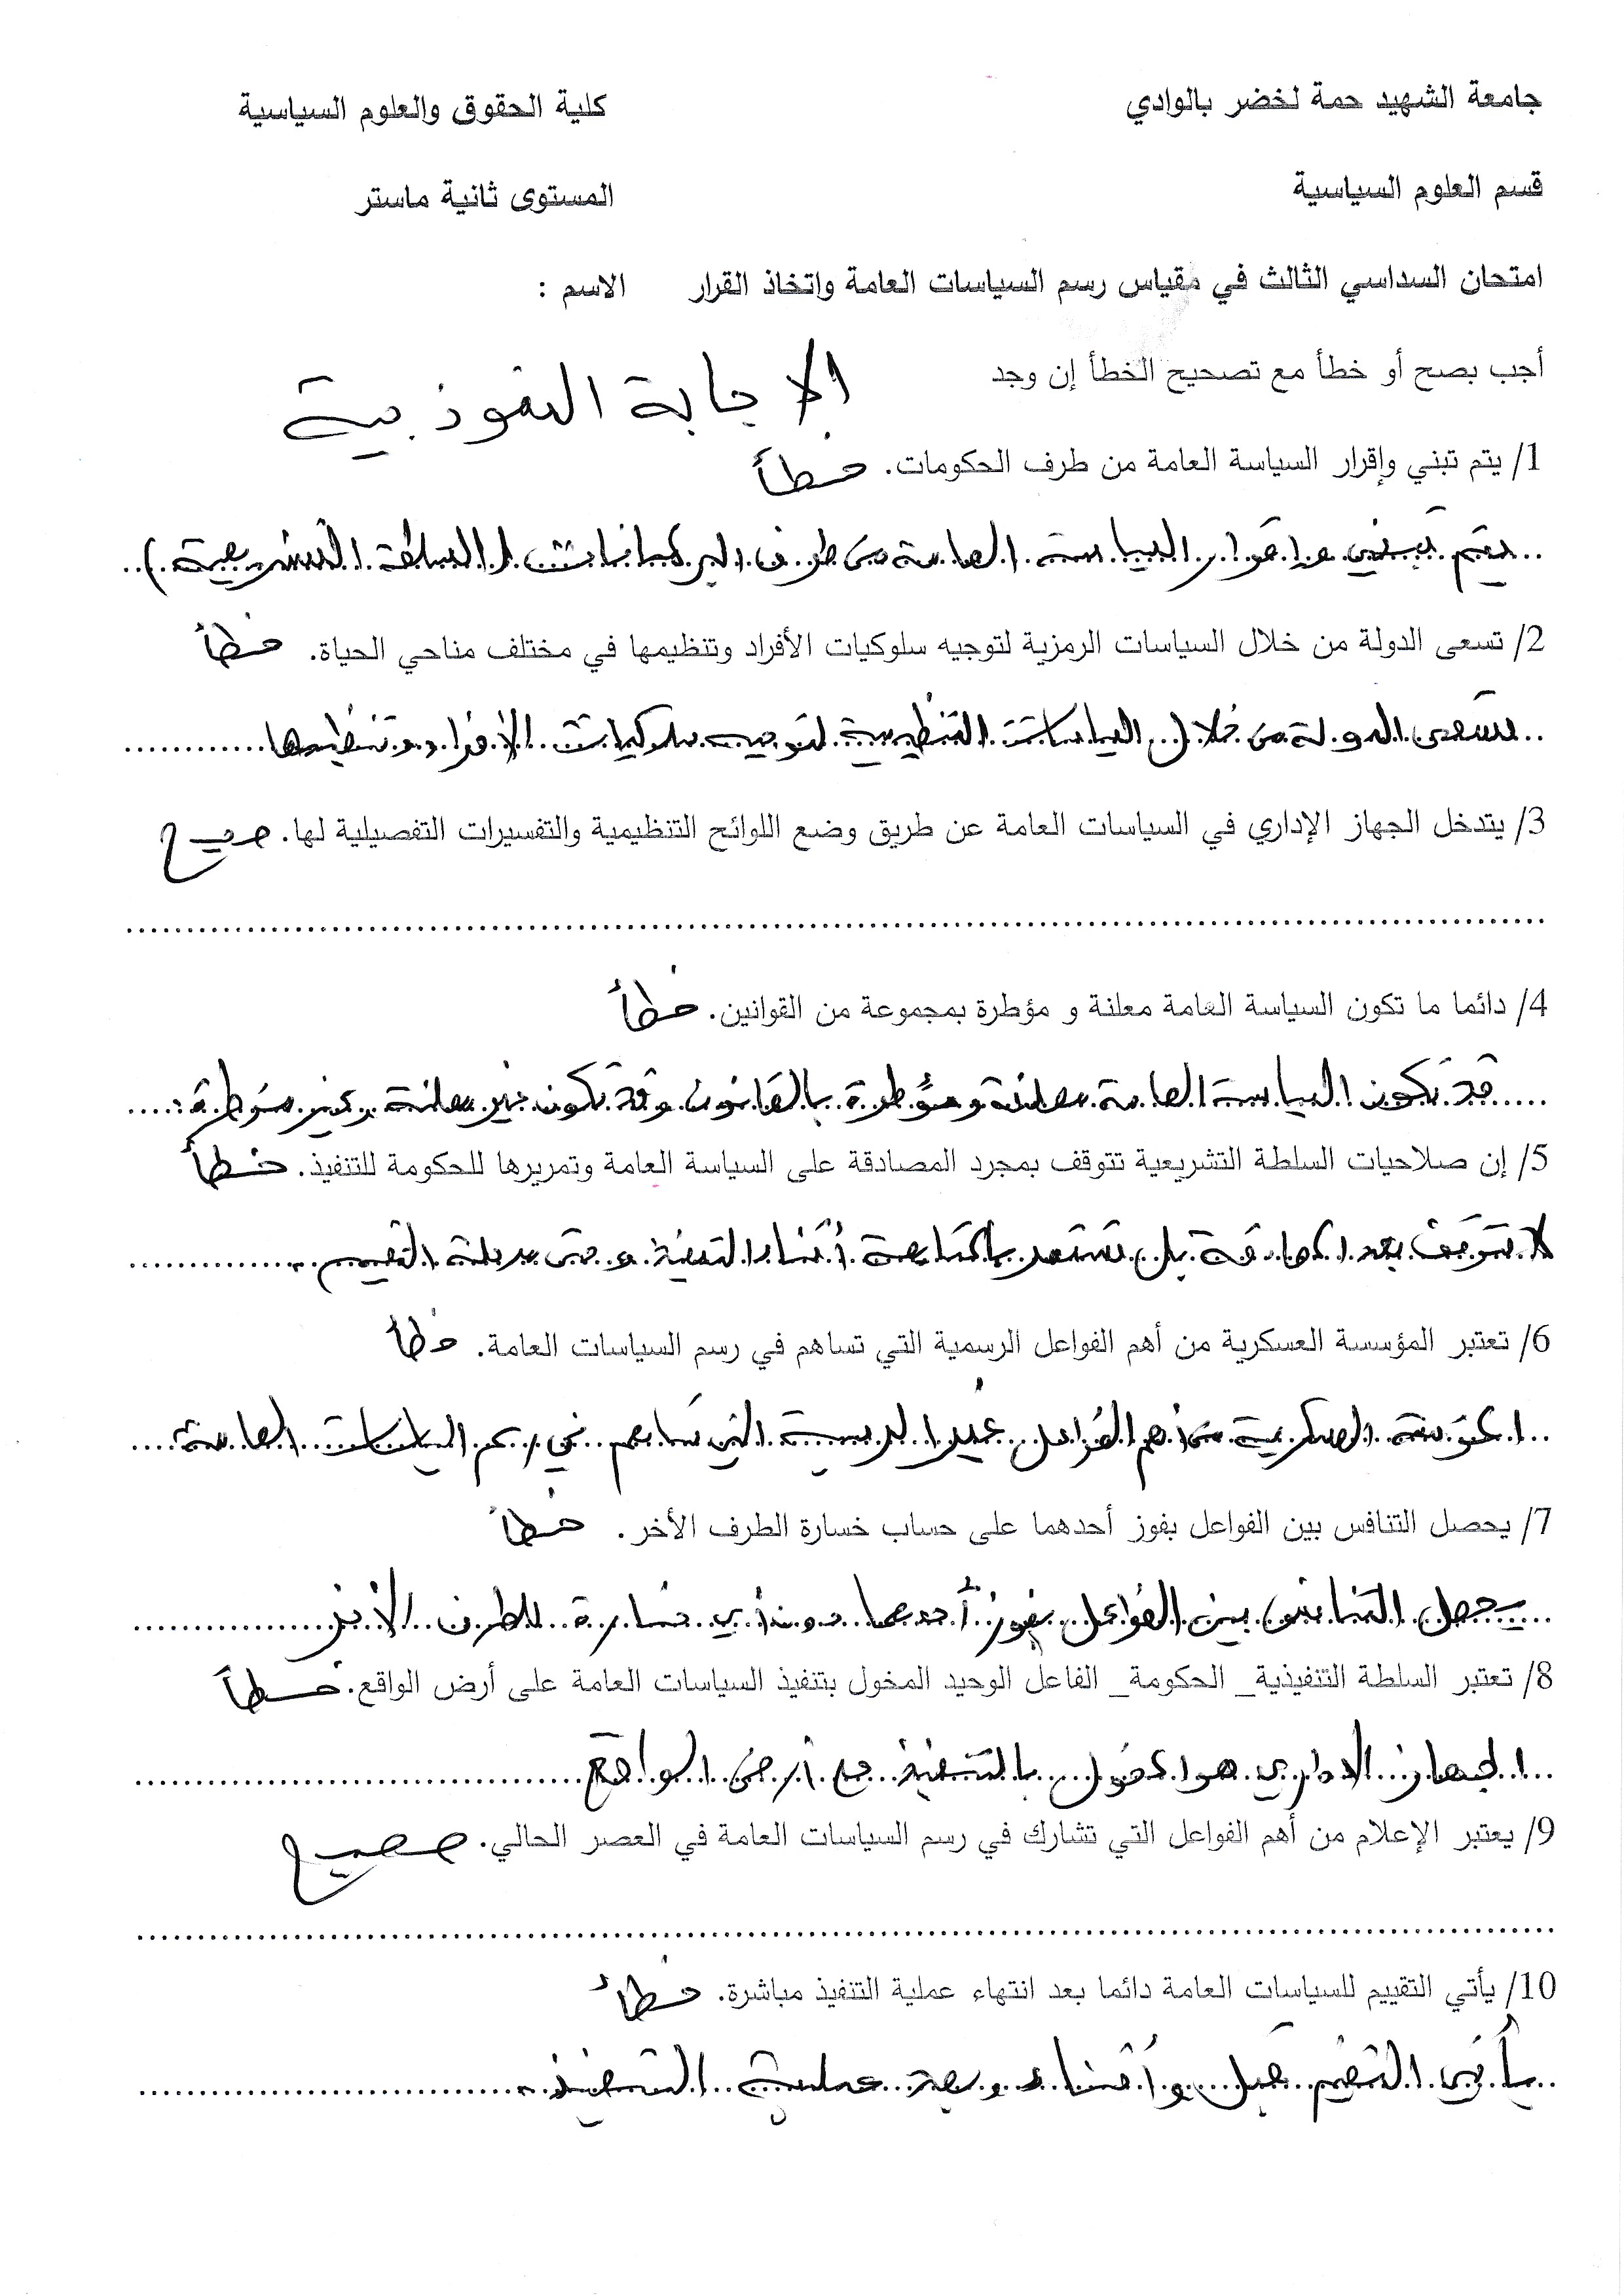 جامعة الشهيد حمة لخضر بالوادي كلية الحقوق والعلوم السياسية
قسم العلوم السياسية المستوى ثانية ماستر
امتحان السداسي الثالث في مقياس رسم السياسات العامة واتخاذ القرار الاسم :
أجب بصح أو خطأ مع تصحيح الخطأ إن وجد
الإجابة النموذجية
1/ يتم تبني وإقرار السياسة العامة من طرف الحكومات. خطأ
يتم تبني وإقرار السياسة العامة من طرف البرلمانات (السلطة التشريعية)
2/ تسعى الدولة من خلال السياسات الرمزية لتوجيه سلوكيات الأفراد وتنظيمها في مختلف مناحي الحياة. خطأ
تسعى الدولة من خلال السياسات التنظيمية لتوجيه سلوكيات الأفراد وتنظيمها
3/ يتدخل الجهاز الإداري في السياسات العامة عن طريق وضع اللوائح التنظيمية والتفسيرات التفصيلية لها. صحيح
4/ دائما ما تكون السياسة العامة معلنة و مؤطرة بمجموعة من القوانين. خطأ
قد تكون السياسة العامة معلنة ومؤطرة بالقانون وقد تكون غير معلنة وغير مؤطرة
5/ إن صلاحيات السلطة التشريعية تتوقف بمجرد المصادقة على السياسة العامة وتمريرها للحكومة للتنفيذ. خطأ
لا تتوقف بعد المصادقة بل تستمر بالمتابعة أثناء التنفيذ وحتى مرحلة التقييم
6/ تعتبر المؤسسة العسكرية من أهم الفواعل الرسمية التي تساهم في رسم السياسات العامة. خطأ
المؤسسة العسكرية من أهم الفواعل غير الرسمية التي تساهم في رسم السياسات العامة
7/ يحصل التنافس بين الفواعل بفوز أحدهما على حساب خسارة الطرف الأخر. خطأ
يحصل التنافس بين الفواعل بفوز أحدهما دون أي خسارة للطرف الأخر
8/ تعتبر السلطة التنفيذية_ الحكومة_ الفاعل الوحيد المخول بتنفيذ السياسات العامة على أرض الواقع. خطأ
الجهاز الإداري هو المخول بالتنفيذ على أرض الواقع
9/ يعتبر الإعلام من أهم الفواعل التي تشارك في رسم السياسات العامة في العصر الحالي. صحيح
10/ يأتي التقييم للسياسات العامة دائما بعد انتهاء عملية التنفيذ مباشرة. خطأ
يأتي التقييم قبل وأثناء وبعد عملية التنفيذ